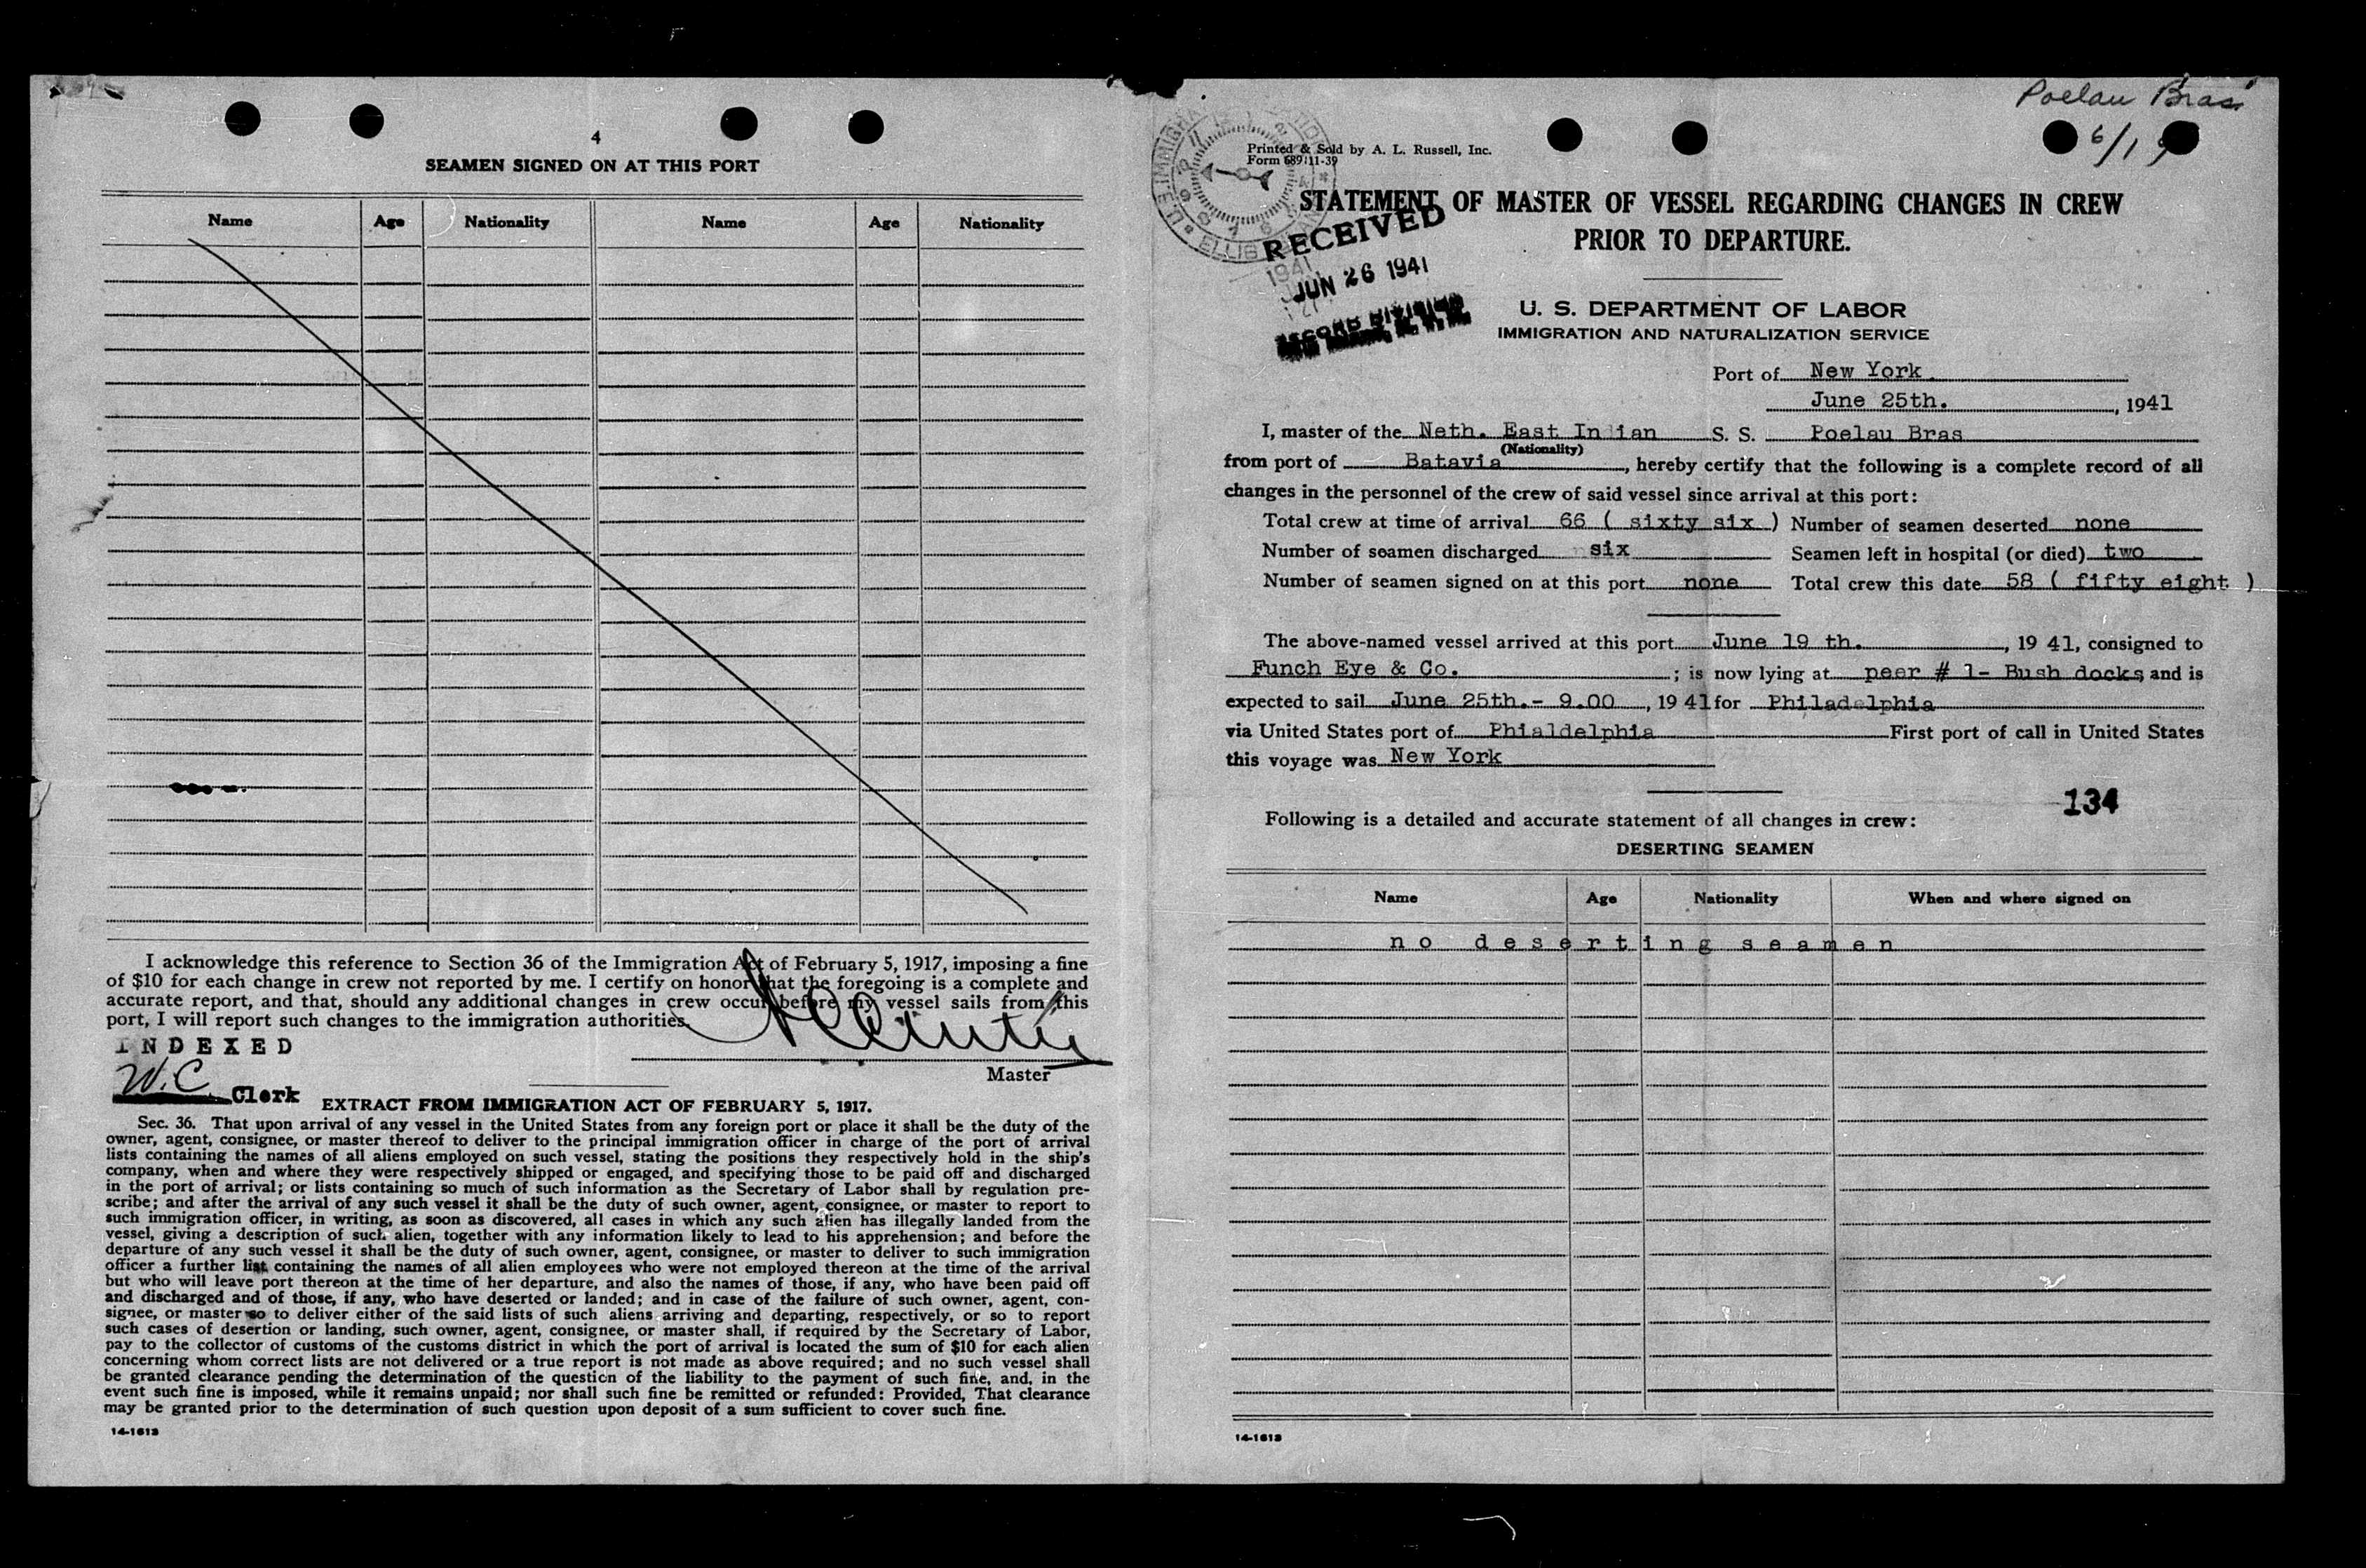 4
SEAMEN SIGNED ON AT THIS PORT
Name Age Nationality Name Age Nationality
I acknowledge this reference to Section 36 of the Immigration Act of February 5, 1917, imposing a fine
of $10 for each change in crew not reported by me. I certify on honor that the foregoing is a complete and
accurate report, and that, should any additional changes in crew occur before my vessel sails from this
port, I will report such changes to the immigration authorities.
INDEXED
Master
W.C. Clerk
EXTRACT FROM IMMIGRATION ACT OF FEBRUARY 5, 1917.
Sec. 36. That upon arrival of any vessel in the United States from any foreign port or place it shall be the duty of the
owner, agent, consignee, or master thereof to deliver to the principal immigration officer in charge of the port of arrival
lists containing the names of all aliens employed on such vessel, stating the positions they respectively hold in the ship's
company, when and where they were respectively shipped or engaged, and specifying those to be paid off and discharged
in the port of arrival; or lists containing so much of such information as the Secretary of Labor shall by regulation pre-
scribe; and after the arrival of any such vessel it shall be the duty of such owner, agent, consignee, or master to report to
such immigration officer, in writing, as soon as discovered, all cases in which any such alien has illegally landed from the
vessel, giving a description of such alien, together with any information likely to lead to his apprehension; and before the
departure of any such vessel it shall be the duty of such owner, agent, consignee, or master to deliver to such immigration
officer a further list containing the names of all alien employees who were not employed thereon at the time of the arrival
but who will leave port thereon at the time of her departure, and also the names of those, if any, who have been paid off
and discharged and of those, if any, who have deserted or landed; and in case of the failure of such owner, agent, con-
signee, or master so to deliver either of the said lists of such aliens arriving and departing, respectively, or so to report
such cases of desertion or landing, such owner, agent, consignee, or master shall, if required by the Secretary of Labor,
pay to the collector of customs of the customs district in which the port of arrival is located the sum of $10 for each alien
concerning whom correct lists are not delivered or a true report is not made as above required; and no such vessel shall
be granted clearance pending the determination of the question of the liability to the payment of such fine, and, in the
event such fine is imposed, while it remains unpaid; nor shall such fine be remitted or refunded: Provided, That clearance
may be granted prior to the determination of such question upon deposit of a sum sufficient to cover such fine.
14-1613
Poelau Bras
6/19
Printed & Sold by A. L. Russell, Inc.
Form 689 11-39
STATEMENT OF MASTER OF VESSEL REGARDING CHANGES IN CREW
PRIOR TO DEPARTURE.
RECEIVED
JUN 26 1941
RECORD DIVISION
U. S. DEPARTMENT OF LABOR
IMMIGRATION AND NATURALIZATION SERVICE
Port of New York
June 25th., 1941
I, master of the Neth. East Indian S. S. Poelau Bras
(Nationality)
from port of Batavia, hereby certify that the following is a complete record of all
changes in the personnel of the crew of said vessel since arrival at this port:
Total crew at time of arrival 66 ( sixty six ) Number of seamen deserted none
Number of seamen discharged six Seamen left in hospital (or died) two
Number of seamen signed on at this port none Total crew this date 58 ( fifty eight )
The above-named vessel arrived at this port June 19 th., 19 41, consigned to
Funch Eye & Co. ; is now lying at peer # 1- Bush docks, and is
expected to sail June 25th.- 9.00, 19 41 for Philadelphia
via United States port of Phialdelphia First port of call in United States
this voyage was New York
134
Following is a detailed and accurate statement of all changes in crew:
DESERTING SEAMEN
Name Age Nationality When and where signed on
no deserting seamen
14-1613